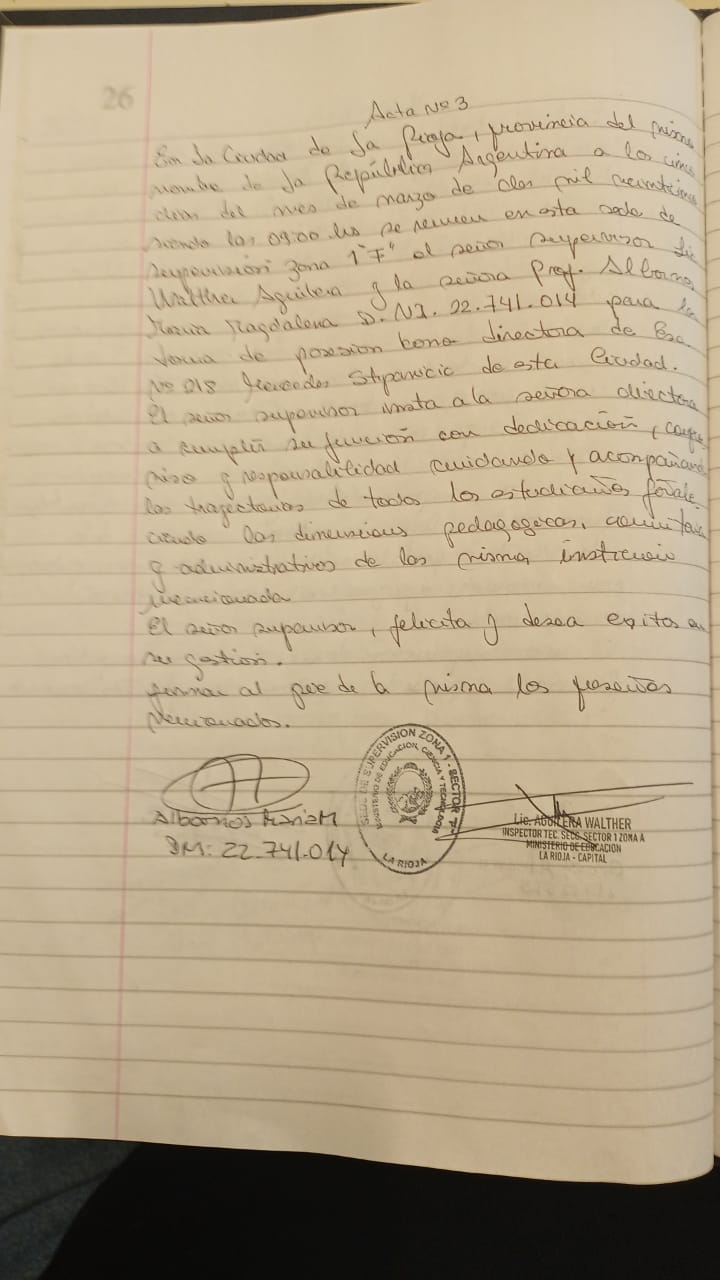 26
Acta Nº 3
En La Ciudad de La Rioja, provincia del mismo
nombre de La República Argentina a los cinco
días del mes de marzo de dos mil veinticinco
siendo las 09:00 hs se reunen en esta sede de
supervisión zona 1 "F" el señor supervisor Lic
Walther Aguilera y la señora Prof. Albornos
María Magdalena D.NI. 22.741.014 para la
toma de posesion como directora de Esc.
Nº 018 Mercedes Stipanicic de esta Ciudad.
El señor supervisor insta a la señora directora
a cumplir su función con dedicación, compro
miso y responsalilidad cuidando y acompañando
las trayectorias de todos los estudiantes fortale
ciendo las dimensiones pedagogicas, comunitarias
y administrativos de las misma institucio
mencionada
El señor supervisor, felicita y desea exitos en
su gestion.
firman al pie de la misma los presentes
mencionados.
Albornos María M
DNI: 22.741.014
SEDE DE SUPERVISION ZONA 1 - SECTOR "F"
MINISTERIO DE EDUCACION, CIENCIA Y TECNOLOGIA
LA RIOJA
Lic. AGUILERA WALTHER
INSPECTOR TEC. SECC. SECTOR 1 ZONA A
MINISTERIO DE EDUCACION
LA RIOJA - CAPITAL